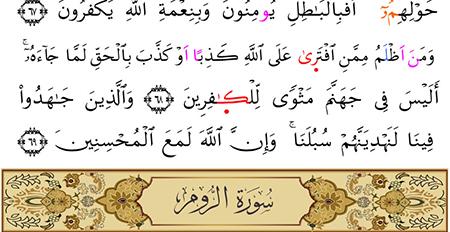 حَوْلِهِمُۥٓ أَفَبِالْبَٰطِلِ يُومِنُونَ وَبِنِعْمَةِ اللَّهِ يَكْفُرُونَ ٦٧
وَمَنَ اَظْلَمُ مِمَّنِ اِفْتَر۪ىٰ عَلَى اَللَّهِ كَذِبًا اَوْ كَذَّبَ بِالْحَقِّ لَمَّا جَآءَهُۥٓۚ
أَلَيْسَ فِى جَهَنَّمَ مَثْوًى لِّلْكٰ۪فِرِينَ ٦٨ وَالَّذِينَ جَٰهَدُواْ
فِينَا لَنَهْدِيَنَّهُمْ سُبُلَنَاۚ وَإِنَّ اَللَّهَ لَمَعَ اَلْمُحْسِنِينَ ٦٩
سُورَةُ الرُّومِ